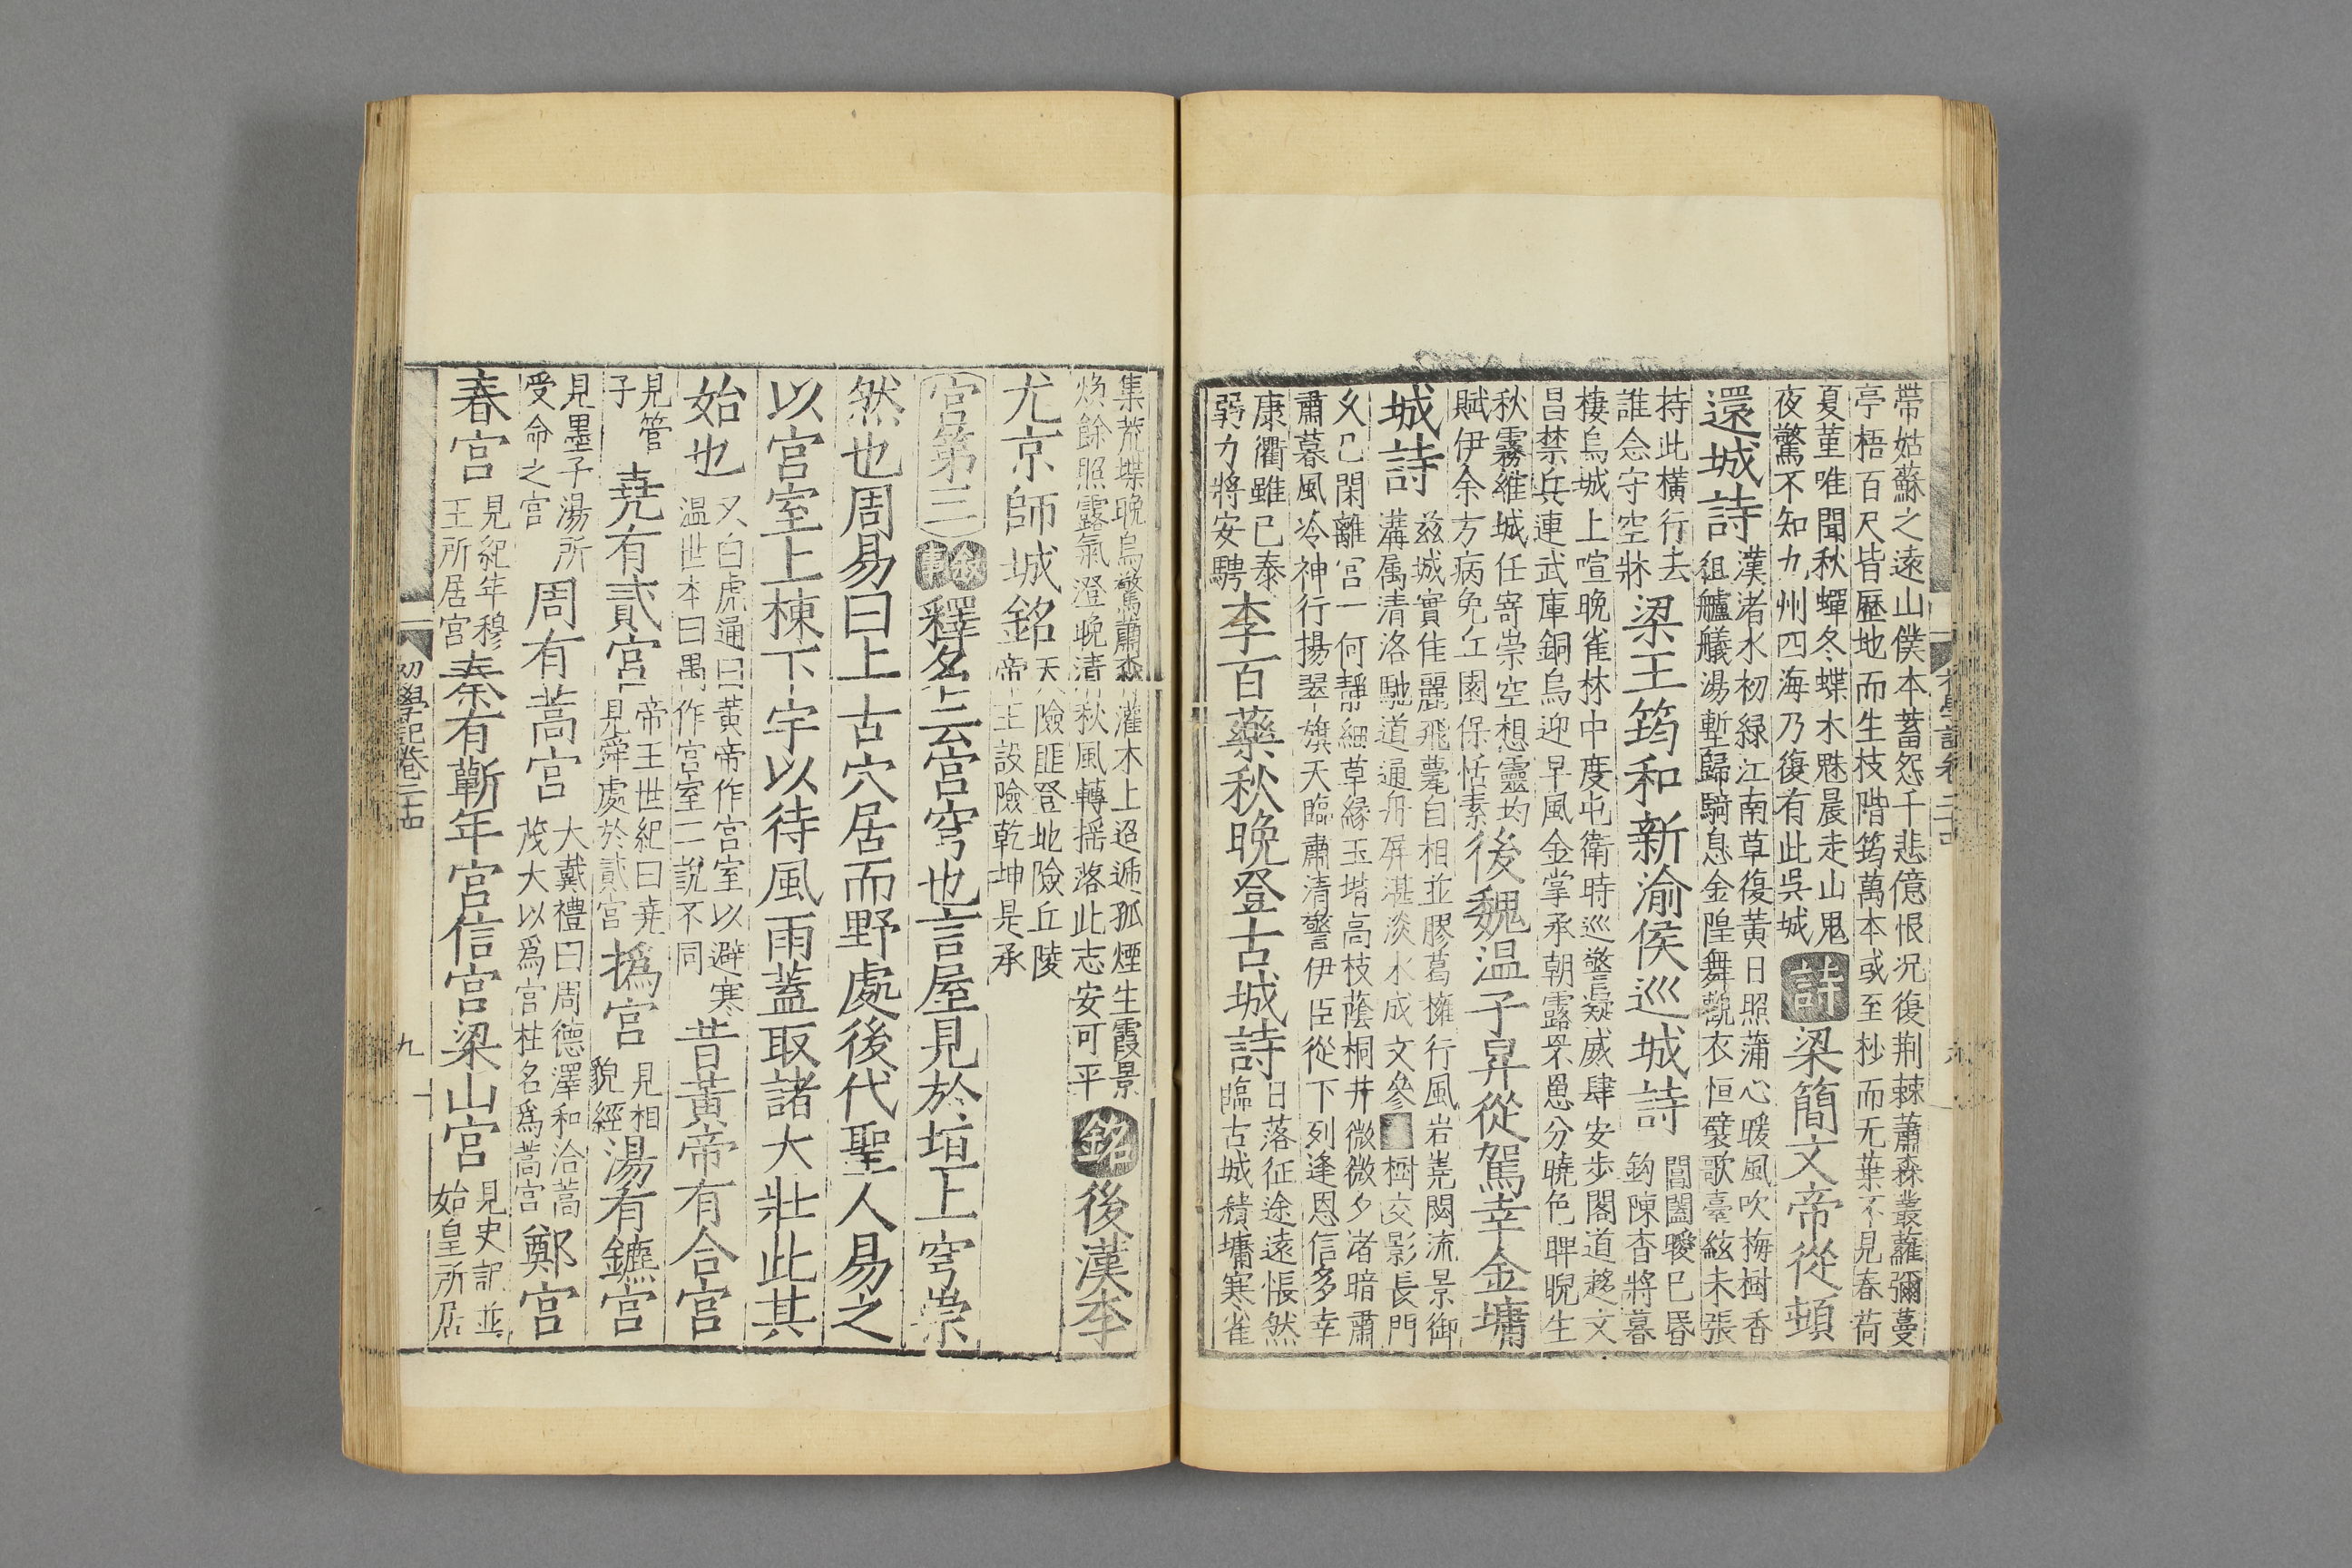 帶姑蘇之遠山僕本蓄怨千悲億恨况復荆棘蕭森叢蘿彌蔓
亭梧百尺皆歷地而生枝階筠萬本或至杪而无葉不見春荷
夏堇唯聞秋蟬冬蝶木魅晨走山鬼
夜驚不知九州四海乃復有此吳城
詩
梁簡文帝從頓
還城詩
漢渚水初緑江南草復黃日照蒲心暖風吹梅樹香
組艫艤湯塹歸騎息金隍舞觀衣恒襞歌臺絃未張
持此橫行去
誰念守空牀
梁王筠和新渝侯巡城詩
閶闔曖巳昬
鈎陳杳將暮
棲烏城上喧晚雀林中度屯衛時巡警凝威肆安歩閣道趍文
昌禁兵連武庫銅烏迎早風金掌承朝露罘罳分曉色睥睨生
秋霧維城任寄崇空想靈均
賦伊余方病免丘園保恬素
後魏温子昇從駕幸金墉
城詩
兹城實佳麗飛甍自相並膠葛擁行風岩嶤閟流景御
溝属清洛馳道通丹屏湛淡水成文參
樹交影長門
乆巳閑離宫一何靜細草緣玉堦高枝蔭桐井微微夕渚暗肅
肅暮風冷神行揚翠旗天臨肅清警伊臣從下列逢恩信多幸
康衢雖已泰
弱力將安騁
李百藥秋晚登古城詩
日落征途遠悵然
臨古城積墉寒雀
集荒堞晚烏驚蕭森灌木上迢遞孤煙生霞景
焕餘照露氣澄晚清秋風轉摇落此志安可平
銘
後漢李
尤京師城銘
天險匪登地險丘陵
帝王設險乾坤是承
宫第三
叙事
釋名云宫穹也言屋見於垣上穹崇
然也周易曰上古穴居而野處後代聖人易之
以宫室上棟下宇以待風雨蓋取諸大壯此其
始也
又白虎通曰黃帝作宫室以避寒
温世本曰禹作宫室二説不同
昔黃帝有合宫
見管
子
堯有貳宫
帝王世紀曰堯
見舜處於貳宫
撝宫
見相
貌經
湯有鑣宫
見墨子湯所
受命之宫
周有蒿宫
大戴禮曰周德澤和洽蒿
茂大以爲宫柱名爲蒿宫
鄭宫
春宫
見紀年穆
王所居宫
秦有蘄年宫信宫梁山宫
見史記並
始皇所居
初學記卷二十四
九